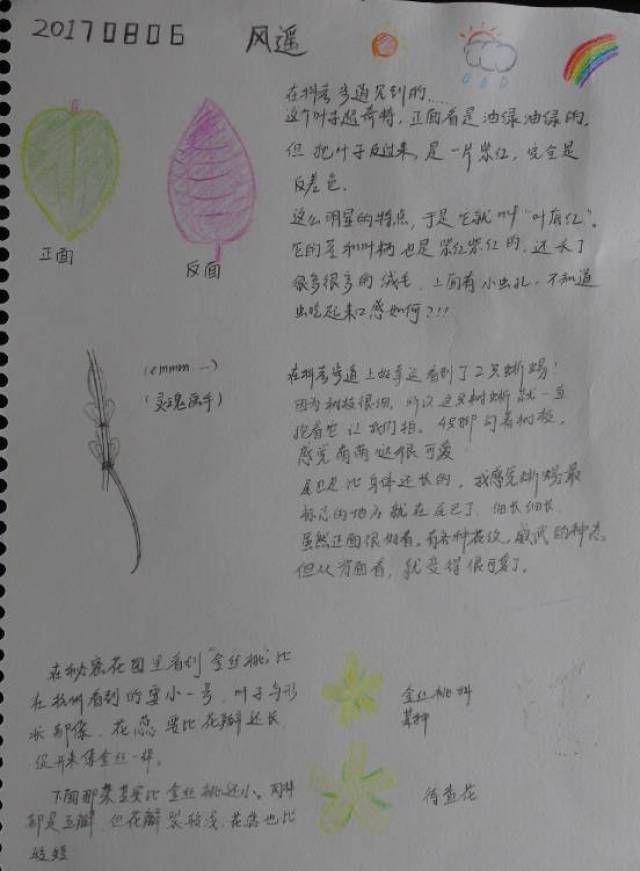 20170806 风遥
在科考步道见到的……
这个叶子超奇特，正面看是油绿油绿的，
但把叶子反过来，是一片紫红，完全是
反差色.
这么明显的特点，于是它就叫“叶底红”。
它的茎和叶柄也是紫红紫红的，还长了
很多很多的绒毛，上面有小虫孔，不知道
虫吃起来口感如何?!!
正面
反面
(emmm …)
(灵魂画手)
在科考步道上好幸运看到了2只蜥蜴!
因为树枝很细，所以这只树蜥就一直
抱着它让我们拍。4只脚勾着树枝，
感觉萌萌哒很可爱
尾巴是比身体还长的，我感觉蜥蜴最
标志的地方就在尾巴了，细长细长，
虽然正面很好看，有各种花纹，威武的种态。
但从背面看，就变得很可爱了。
在秘密花园里看到“金丝桃”，比
在杭州看到的要小一号，叶子与形
状都像，花蕊要比花瓣还长，
绽开来像金丝一样。
金丝桃科
某种
下面那朵甚至比金丝桃还小。同样
都是五瓣，但花瓣裂较浅，花蕊也比
较短
待查花